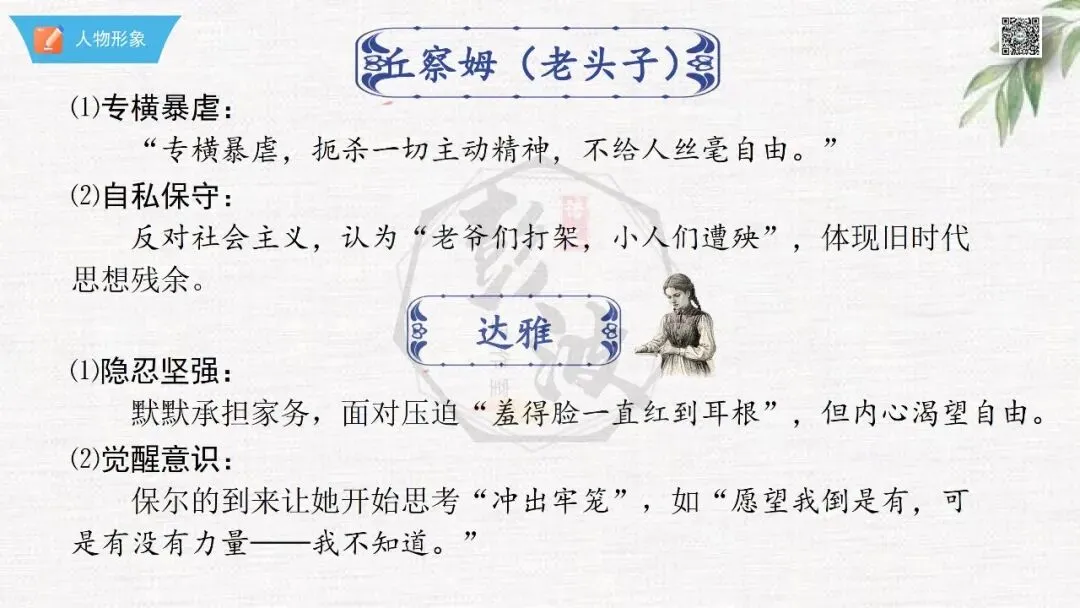 人物形象
丘察姆（老头子）
⑴专横暴虐：
“专横暴虐，扼杀一切主动精神，不给人丝毫自由。”
⑵自私保守：
反对社会主义，认为“老爷们打架，小人们遭殃”，体现旧时代
思想残余。
达雅
⑴隐忍坚强：
默默承担家务，面对压迫“羞得脸一直红到耳根”，但内心渴望自由。
⑵觉醒意识：
保尔的到来让她开始思考“冲出牢笼”，如“愿望我倒是有，可
是有没有力量——我不知道。”